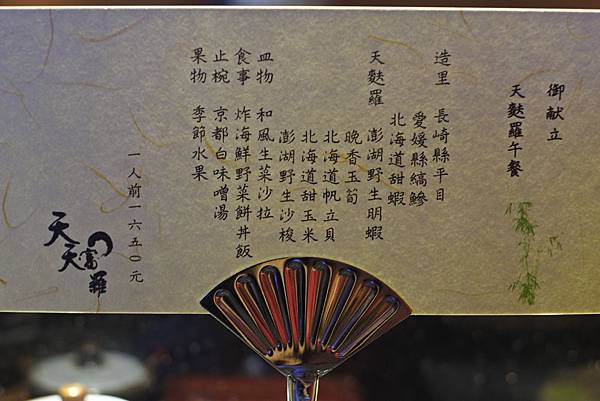 御献立
天麩羅午餐
造里 長崎縣平目
愛媛縣縞鰺
北海道甜蝦
天麩羅 澎湖野生明蝦
晚香玉筍
北海道帆立貝
北海道甜玉米
澎湖野生沙梭
皿物 和風生菜沙拉
食事 炸海鮮野菜餅丼飯
止椀 京都白味噌湯
果物 季節水果
一人前一六五〇元
天天の富羅